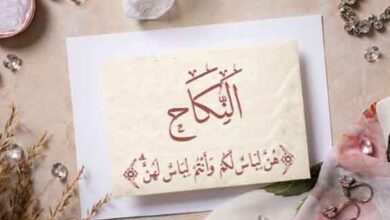 اَلنِّكَاح
﴿هُنَّ لِبَاسٌ لَكُمْ وَأَنْتُمْ لِبَاسٌ لَهُنَّ﴾